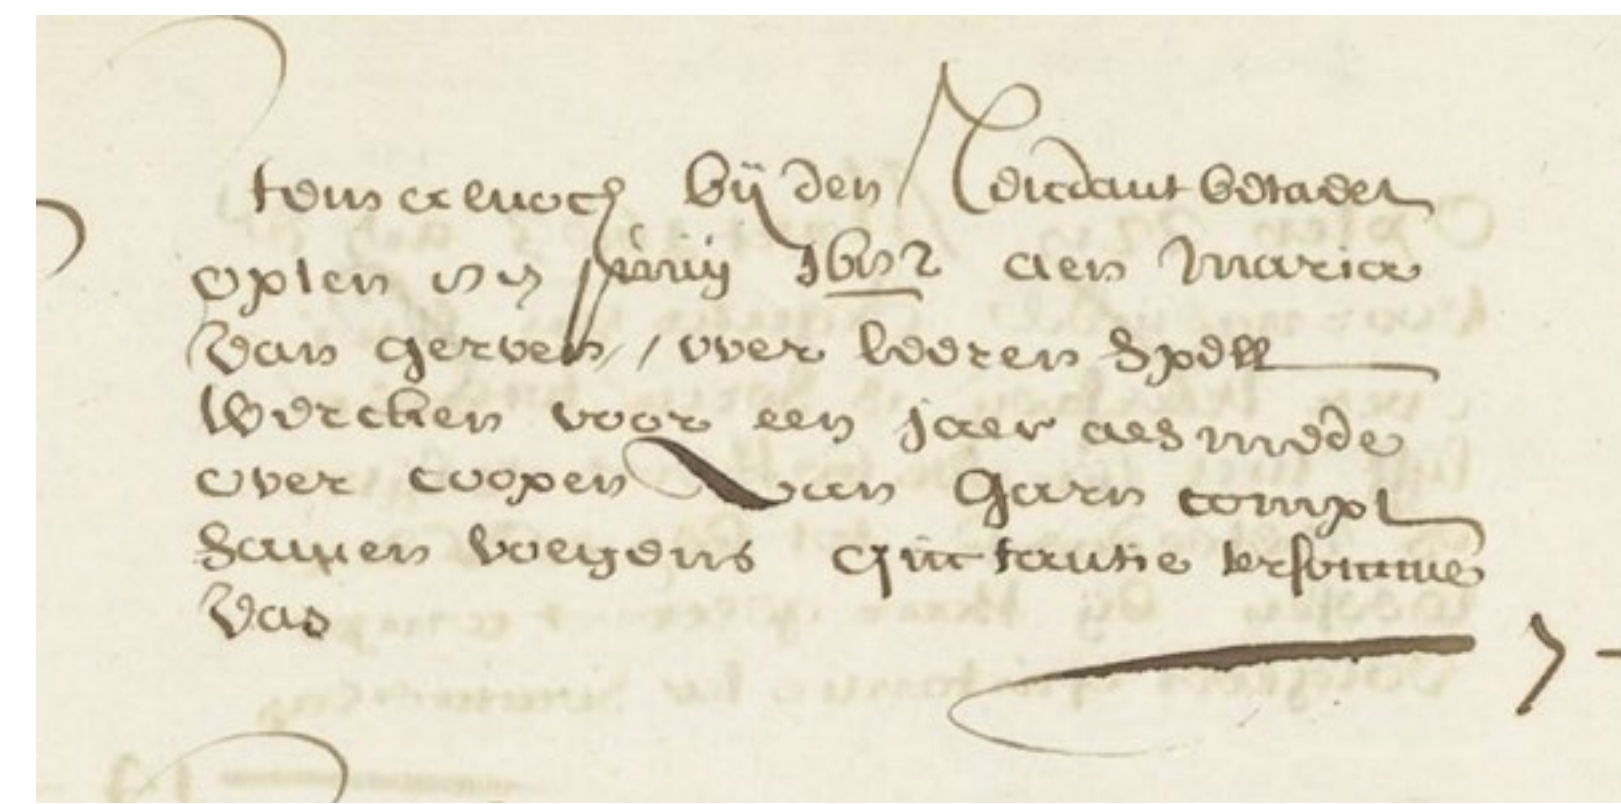 Item alnoch bij den Rendant betaelt
opten Junij 1652 aen Maria
van gerven / over leeren Spell
wercken voor een jaer als mede
over coopen van Garn compt
samen volgens quitantie ter somme
van
7 -